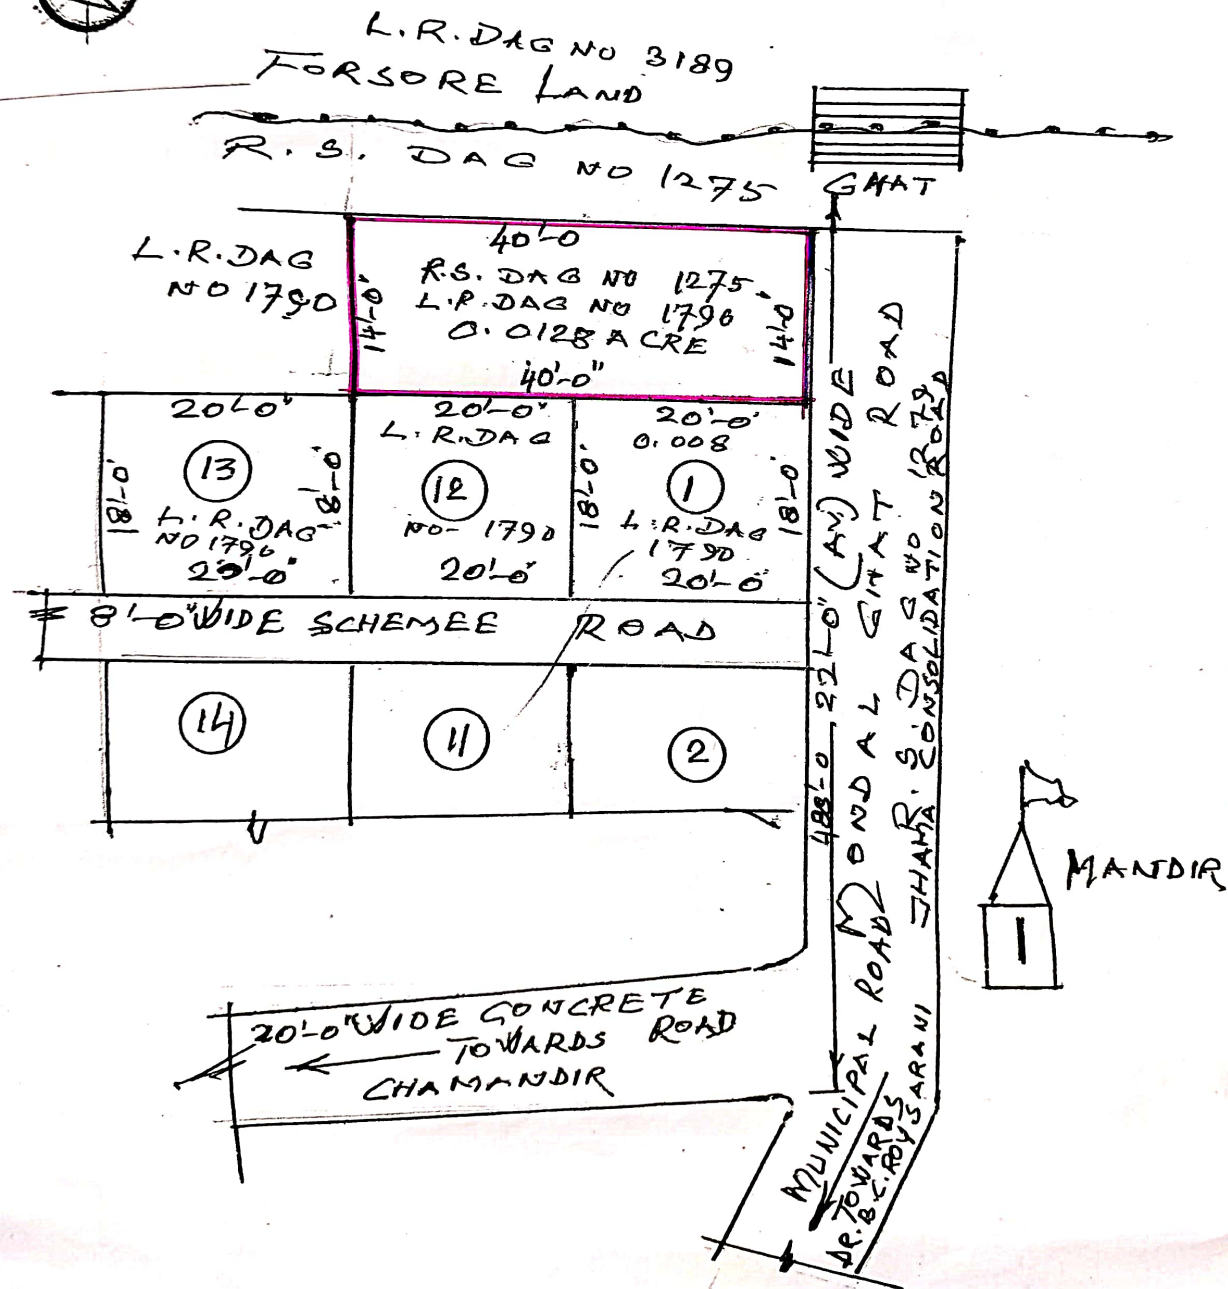 L.R. DAG NO 3189
FORSORE LAND
R. S. DAG NO 1275
GHAT
L.R. DAG
NO 1790
40'-0
R.S. DAG NO 1275
L.R. DAG NO 1790
0.0128 ACRE
40'-0"
14'-0"
14'-0"
20'-0"
18'-0"
13
18'-0"
L. R. DAG
NO 1790
20'-0"
20'-0"
L. R. DAG
12
NO- 1790
20'-0"
20'-0"
0.008
18'-0"
1
18'-0"
L. R. DAG
1790
20'-0"
8'-0" WIDE SCHEMEE ROAD
14
11
2
488'-0
22'-0" (AV) WIDE
MONDAL GHAT ROAD
R. S. DAG NO 1279
JHAMA CONSOLIDATION ROAD
MUNICIPAL ROAD
MANDIR
20'-0" WIDE CONCRETE
ROAD
TOWARDS
CHAMANDIR
TOWARDS
DR. B.C. ROY SARANI